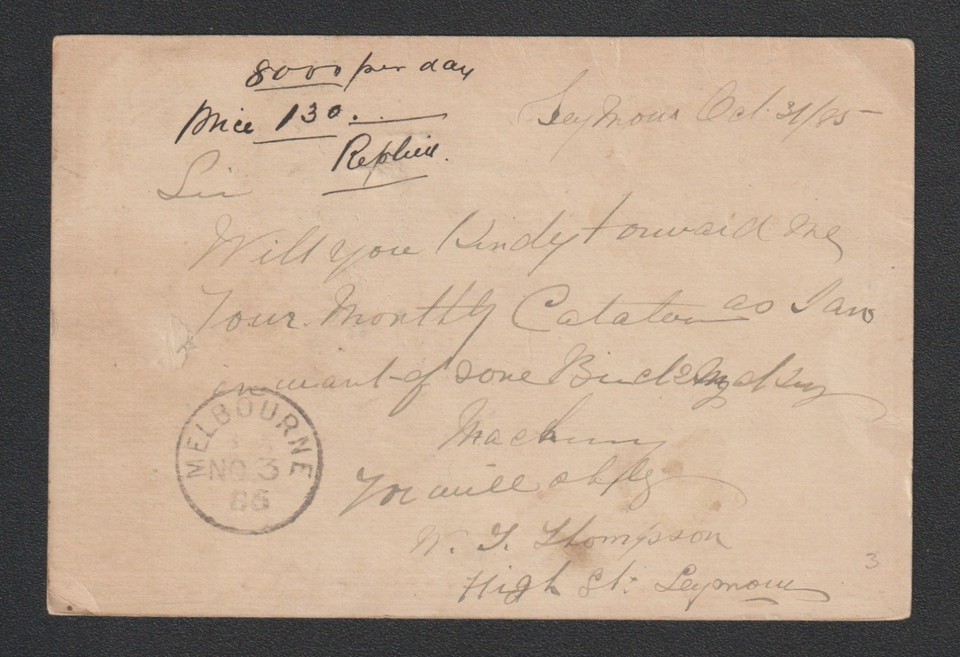 8000 per day
Price 130.
Replied.
Seymour Oct. 31/85
Sir
Will you Kindly forward me
Your Monthly Catalou as I am
in want of some Brick Making
Machinery
You will oblige
W. J. Thompson
High St. Seymour
MELBOURNE
NO 3
3